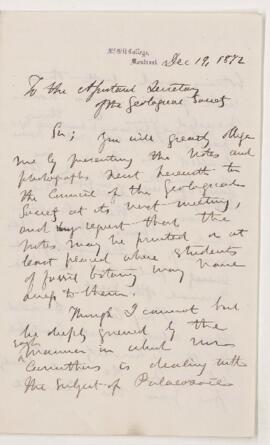 McGill College,
Montreal Dec 19, 1872
To the Assistant Secretary
of the Geological Society
Sir; You will greatly oblige
me by presenting the Notes and
photographs sent herewith to
the Council of the Geological
Society at its next meeting,
and my request that the
Notes may be printed or at
least placed where students
of fossil botany may have
access to them.
Though I cannot but
be deeply grieved by the
manner in which Mr
Carruthers is dealing with
the subject of Palaeozoic